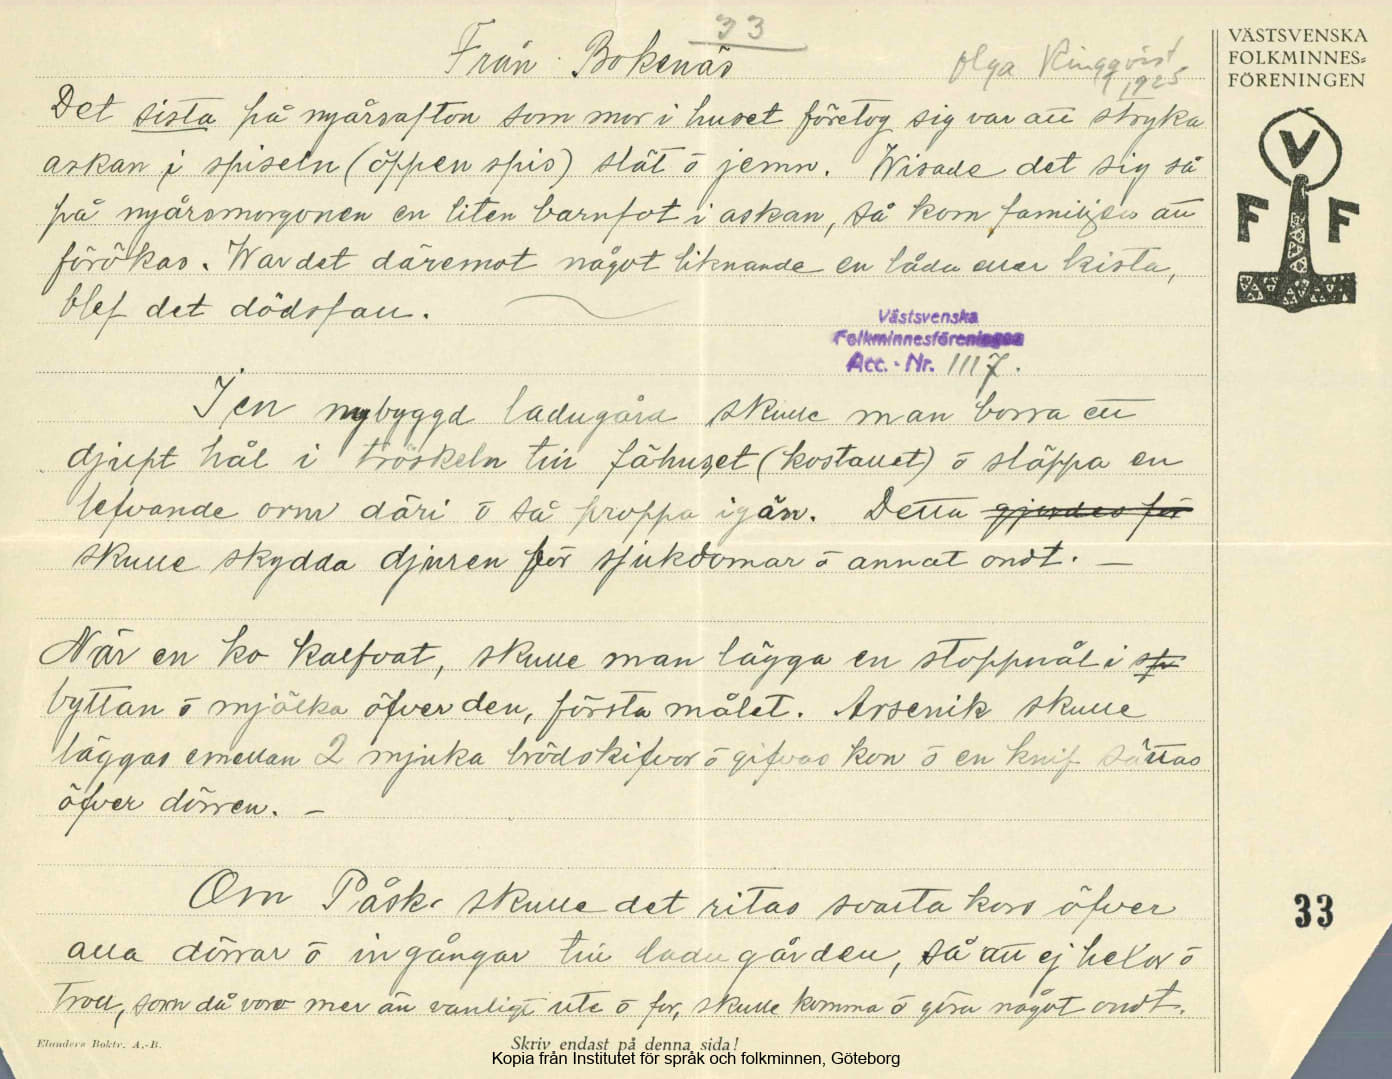 33
Från Bokenäs
Olga Ringqvist
1925
VÄSTSVENSKA
FOLKMINNES=
FÖRENINGEN
V
F F
Det sista på nyårsafton som mor i huset företog sig var att stryka
askan i spiseln (öppen spis) slät o jemn. Wisade det sig så
på nyårsmorgonen en liten barnfot i askan, så kom familjen att
förökas. War det däremot något liknande en låda eller kista,
blef det dödsfall.
Västsvenska
Folkminnesföreningen
Acc. - Nr. 1117.
I en nybyggd ladugård skulle man borra ett
djupt hål i tröskeln till fähuset (kostallet) o släppa en
lefvande orm däri o så proppa igän. Detta gjordes för
skulle skydda djuren för sjukdomar o annat ondt. —
När en ko kalfvat, skulle man lägga en stoppnål i
byttan o mjölka öfver den, första målet. Arsenik skulle
läggas emellan 2 mjuka brödskifvor o gifvas kon o en knif sättas
öfver dörren. —
Om Påsk skulle det ritas svarta kors öfver
alla dörrar o ingångar till ladugården, så att ej hexor o
troll, som då voro mer än vanligt ute o for, skulle komma o göra något ondt.
33
Elanders Boktr. A.-B.
Skriv endast på denna sida!
Kopia från Institutet för språk och folkminnen, Göteborg